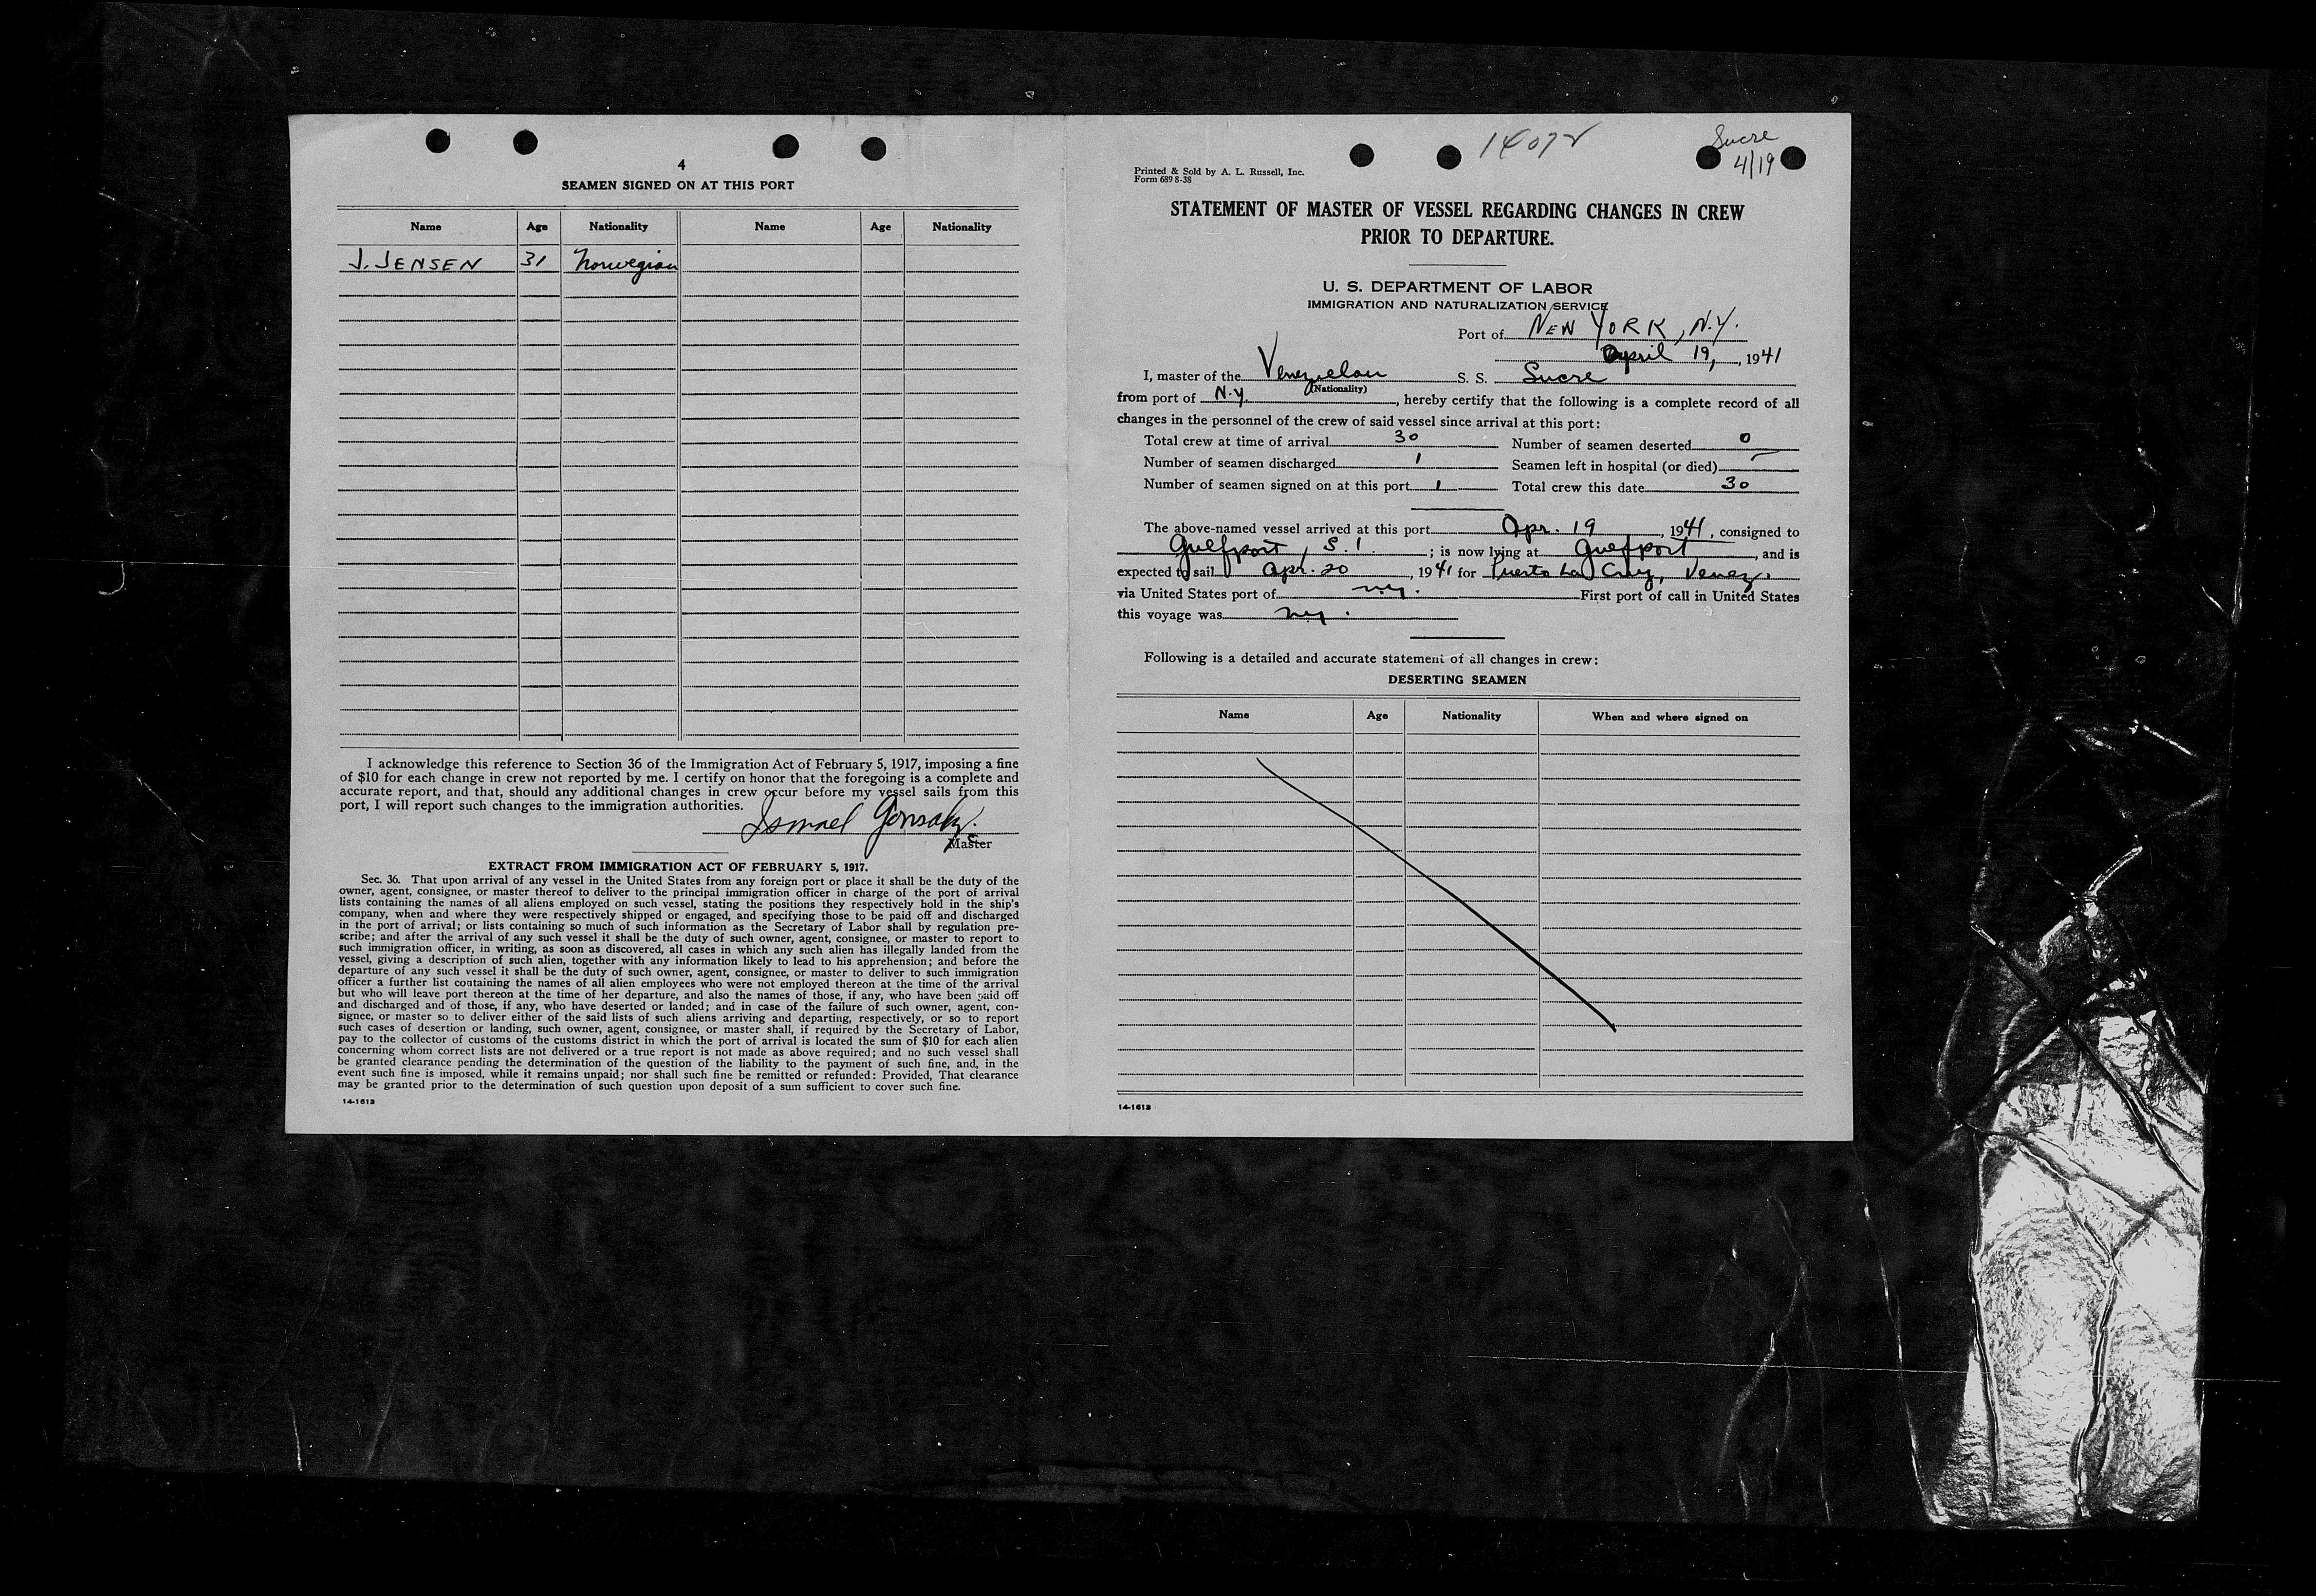 4
SEAMEN SIGNED ON AT THIS PORT
Name Age Nationality Name Age Nationality
J. JENSEN 31 Norwegian
I acknowledge this reference to Section 36 of the Immigration Act of February 5, 1917, imposing a fine
of $10 for each change in crew not reported by me. I certify on honor that the foregoing is a complete and
accurate report, and that, should any additional changes in crew occur before my vessel sails from this
port, I will report such changes to the immigration authorities.
Ismael
Master
EXTRACT FROM IMMIGRATION ACT OF FEBRUARY 5, 1917.
Sec. 36. That upon arrival of any vessel in the United States from any foreign port or place it shall be the duty of the
owner, agent, consignee, or master thereof to deliver to the principal immigration officer in charge of the port of arrival
lists containing the names of all aliens employed on such vessel, stating the positions they respectively hold in the ship's
company, when and where they were respectively shipped or engaged, and specifying those to be paid off and discharged
in the port of arrival; or lists containing so much of such information as the Secretary of Labor shall by regulation pre-
scribe; and after the arrival of any such vessel it shall be the duty of such owner, agent, consignee, or master to report to
such immigration officer, in writing, as soon as discovered, all cases in which any such alien has illegally landed from the
vessel, giving a description of such alien, together with any information likely to lead to his apprehension; and before the
departure of any such vessel it shall be the duty of such owner, agent, consignee, or master to deliver to such immigration
officer a further list containing the names of all alien employees who were not employed thereon at the time of the arrival
but who will leave port thereon at the time of her departure, and also the names of those, if any, who have been paid off
and discharged and of those, if any, who have deserted or landed; and in case of the failure of such owner, agent, con-
signee, or master so to deliver either of the said lists of such aliens arriving and departing, respectively, or so to report
such cases of desertion or landing, such owner, agent, consignee, or master shall, if required by the Secretary of Labor,
pay to the collector of customs of the customs district in which the port of arrival is located the sum of $10 for each alien
concerning whom correct lists are not delivered or a true report is not made as above required; and no such vessel shall
be granted clearance pending the determination of the question of the liability to the payment of such fine, and, in the
event such fine is imposed, while it remains unpaid; nor shall such fine be remitted or refunded: Provided, That clearance
may be granted prior to the determination of such question upon deposit of a sum sufficient to cover such fine.
14-1613
14072
Sucre
4/19
Printed & Sold by A. L. Russell, Inc.
Form 689 8-38
STATEMENT OF MASTER OF VESSEL REGARDING CHANGES IN CREW
PRIOR TO DEPARTURE.
U. S. DEPARTMENT OF LABOR
IMMIGRATION AND NATURALIZATION SERVICE
Port of NEW YORK, N.Y.
April 19, 1941
I, master of the Venezuelan S. S. Sucre
(Nationality)
from port of N.Y. , hereby certify that the following is a complete record of all
changes in the personnel of the crew of said vessel since arrival at this port:
Total crew at time of arrival 30 Number of seamen deserted 0
Number of seamen discharged 1 Seamen left in hospital (or died) -
Number of seamen signed on at this port 1 Total crew this date 30
The above-named vessel arrived at this port Apr. 19 , 1941, consigned to
Gulfport, S.I. ; is now lying at Gulfport , and is
expected to sail Apr. 20 , 1941 for Puerto La Cruz, Venez.
via United States port of n.y. First port of call in United States
this voyage was ny.
Following is a detailed and accurate statement of all changes in crew:
DESERTING SEAMEN
Name Age Nationality When and where signed on
14-1613